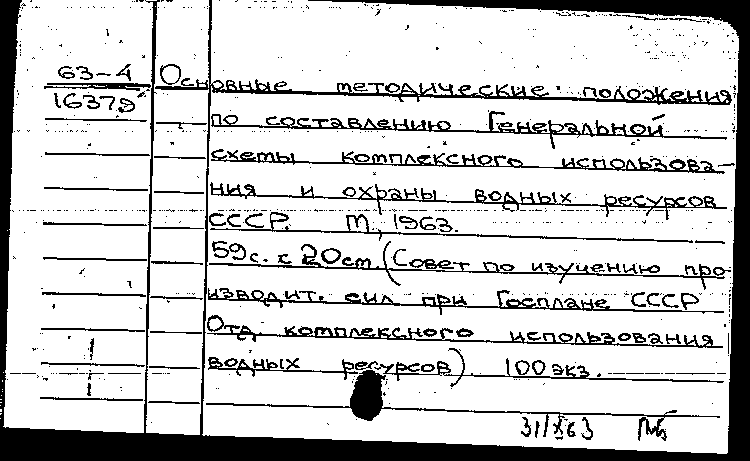 63-4 Основные методические положения
16379 по составлению Генеральной
схемы комплексного использова-
ния и охраны водных ресурсов
СССР. М, 1963.
59 с. 20 cm. (Совет по изучению про-
изводит. сил при Госплане СССР
Отд. комплексного использования
водных ресурсов) 100 экз.
31/X63